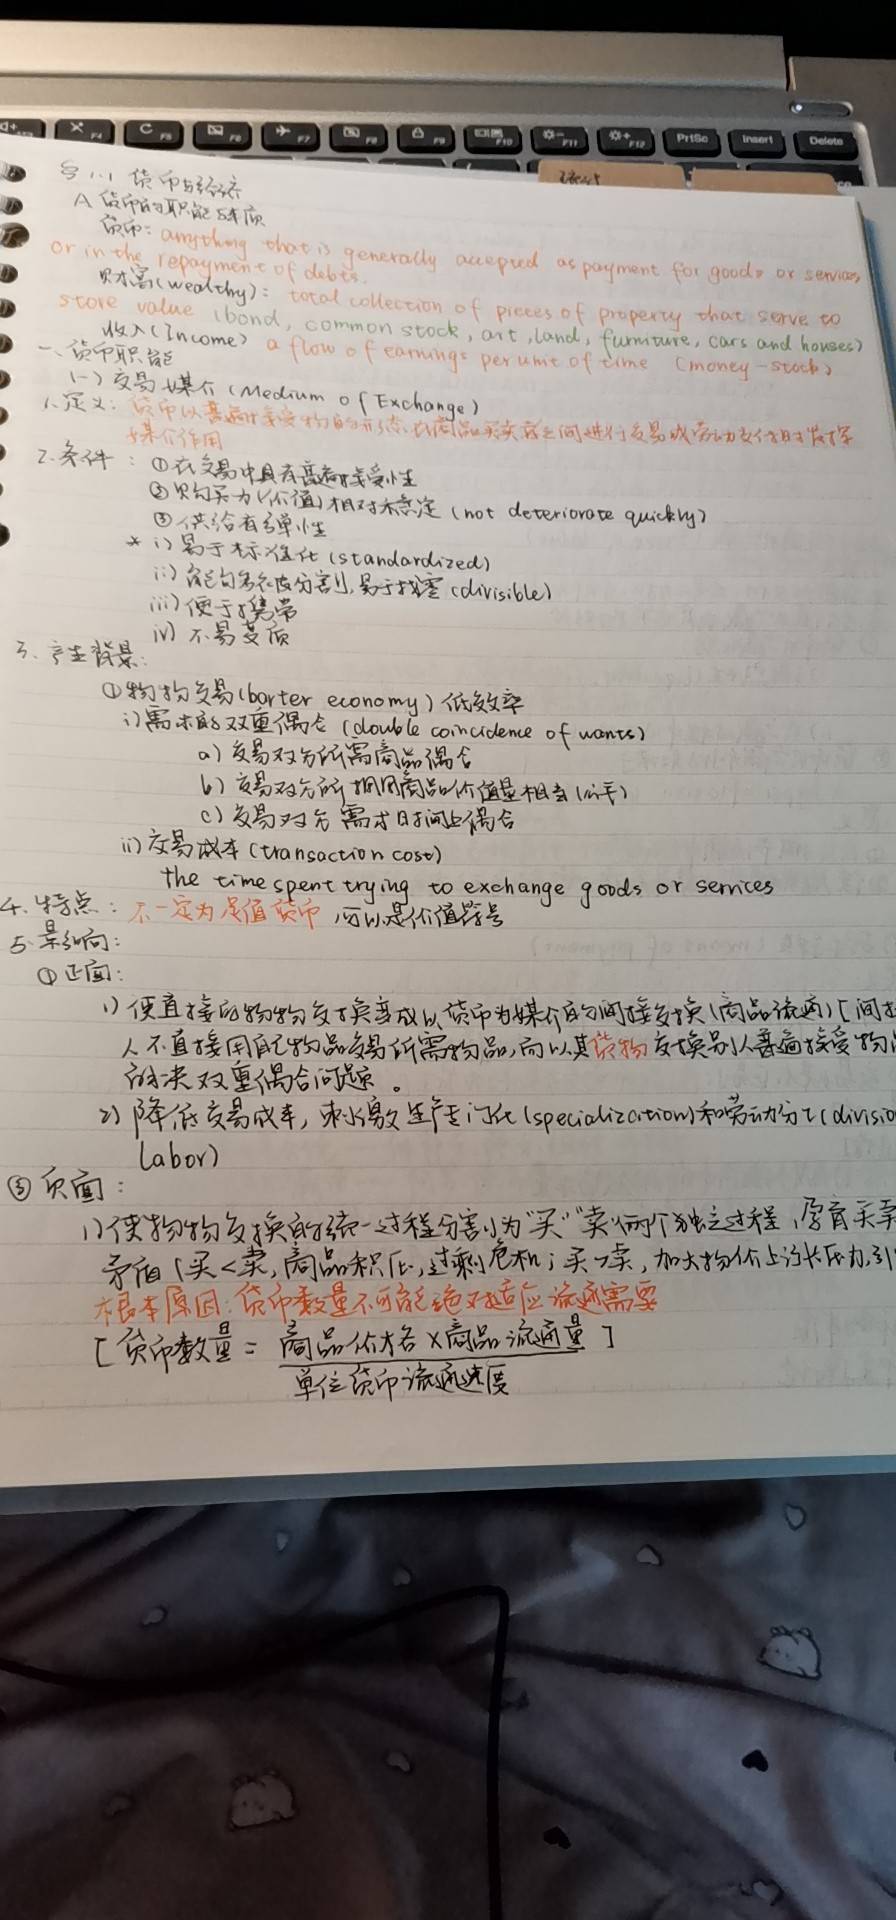 F4
F5
F6
F7
F8
F9
F10
F11
F12
PrtSc
Insert
Delete
§1.1 货币与经济
A 货币的职能与本质
货币: anything that is generally accepted as payment for goods or services
or in the repayment of debts.
财富(wealthy): total collection of pieces of property that serve to
store value (bond, common stock, art, land, furniture, cars and houses)
收入(Income) a flow of earnings per unit of time (money-stock)
一、货币职能
(一) 交易媒介 (Medium of Exchange)
1.定义: 货币以普遍接受物的形态在商品买卖者之间进行交易或劳动支付时发挥
媒介作用
2.条件: ①在交易中具有普遍接受性
②购买力(价值)相对稳定 (not deteriorate quickly)
③供给有弹性
* i) 易于标准化 (standardized)
ii) 能够多次被分割,易于找零 (divisible)
iii) 便于携带
iv) 不易变质
3.产生背景:
①物物交易(barter economy) 低效率
i)需求的双重偶合 (double coincidence of wants)
a) 交易双方所需商品偶合
b) 交易双方所拥用商品价值量相当 (公平)
c) 交易双方需求时间上偶合
ii) 交易成本 (transaction cost)
the time spent trying to exchange goods or services
4.特点: 不一定为足值货币,可以是价值符号
5.影响:
①正面:
1) 使直接的物物交换变成以货币为媒介的间接交换(商品流通) [间接
人不直接用自己物品交易所需物品,而以其货物交换别人普遍接受物
的决双重偶合问题。
2) 降低交易成本, 刺激生产专门化(specialization)和劳动分工(divisio
labor)
③ 负面:
1)使物物交换的统一过程分割为“买”“卖”两个独立过程,孕育买卖
矛盾(买<卖,商品积压,过剩危机;买>卖,加大物价上涨压力,引
根本原因:货币数量不可能绝对适应流通需要
[货币数量 = 商品价格×商品流通量]
单位货币流通速度